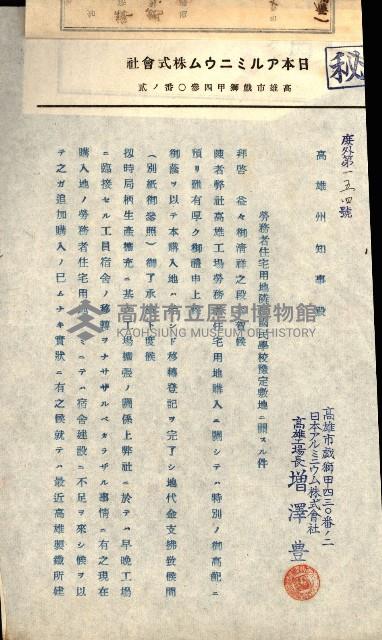 日本アルミニウム株式會社
高雄市戲獅甲四參〇番ノ貳
秘
庶外第一五四號
高雄州知事殿
高雄市戲獅甲四三〇番ノ二
日本アルミニウム株式會社
高雄工場長 增澤豊
勞務者住宅用地 學校豫定敷地ニ關スル件
拜啓 益々御清祥之段 賀候
陳者弊社高雄工場勞務 住宅用地購入ニ關シテハ特別ノ御高配ニ
預リ難有厚ク御禮申上
御蔭ヲ以テ本購入地ハ ンド移轉登記ヲ完了シ地代金支拂致候間
(別紙御參照)御了承 度候
扨時局柄生產擴充ニ基 場擴張ノ關係上弊社ニ於テハ早晚工場
ニ臨接セル工員宿舍ノ移轉ヲナサザルベカラザル事情ニ有之現在
購入地ノ勞務者住宅用 ミニテハ宿舍建設ニ不足ヲ來シ候ヲ以
テ之ガ追加購入ノ已ムナキ實狀ニ有之候就テハ最近高雄製鐵所建
高雄市立歷史博物館
KAOHSIUNG MUSEUM OF HISTORY